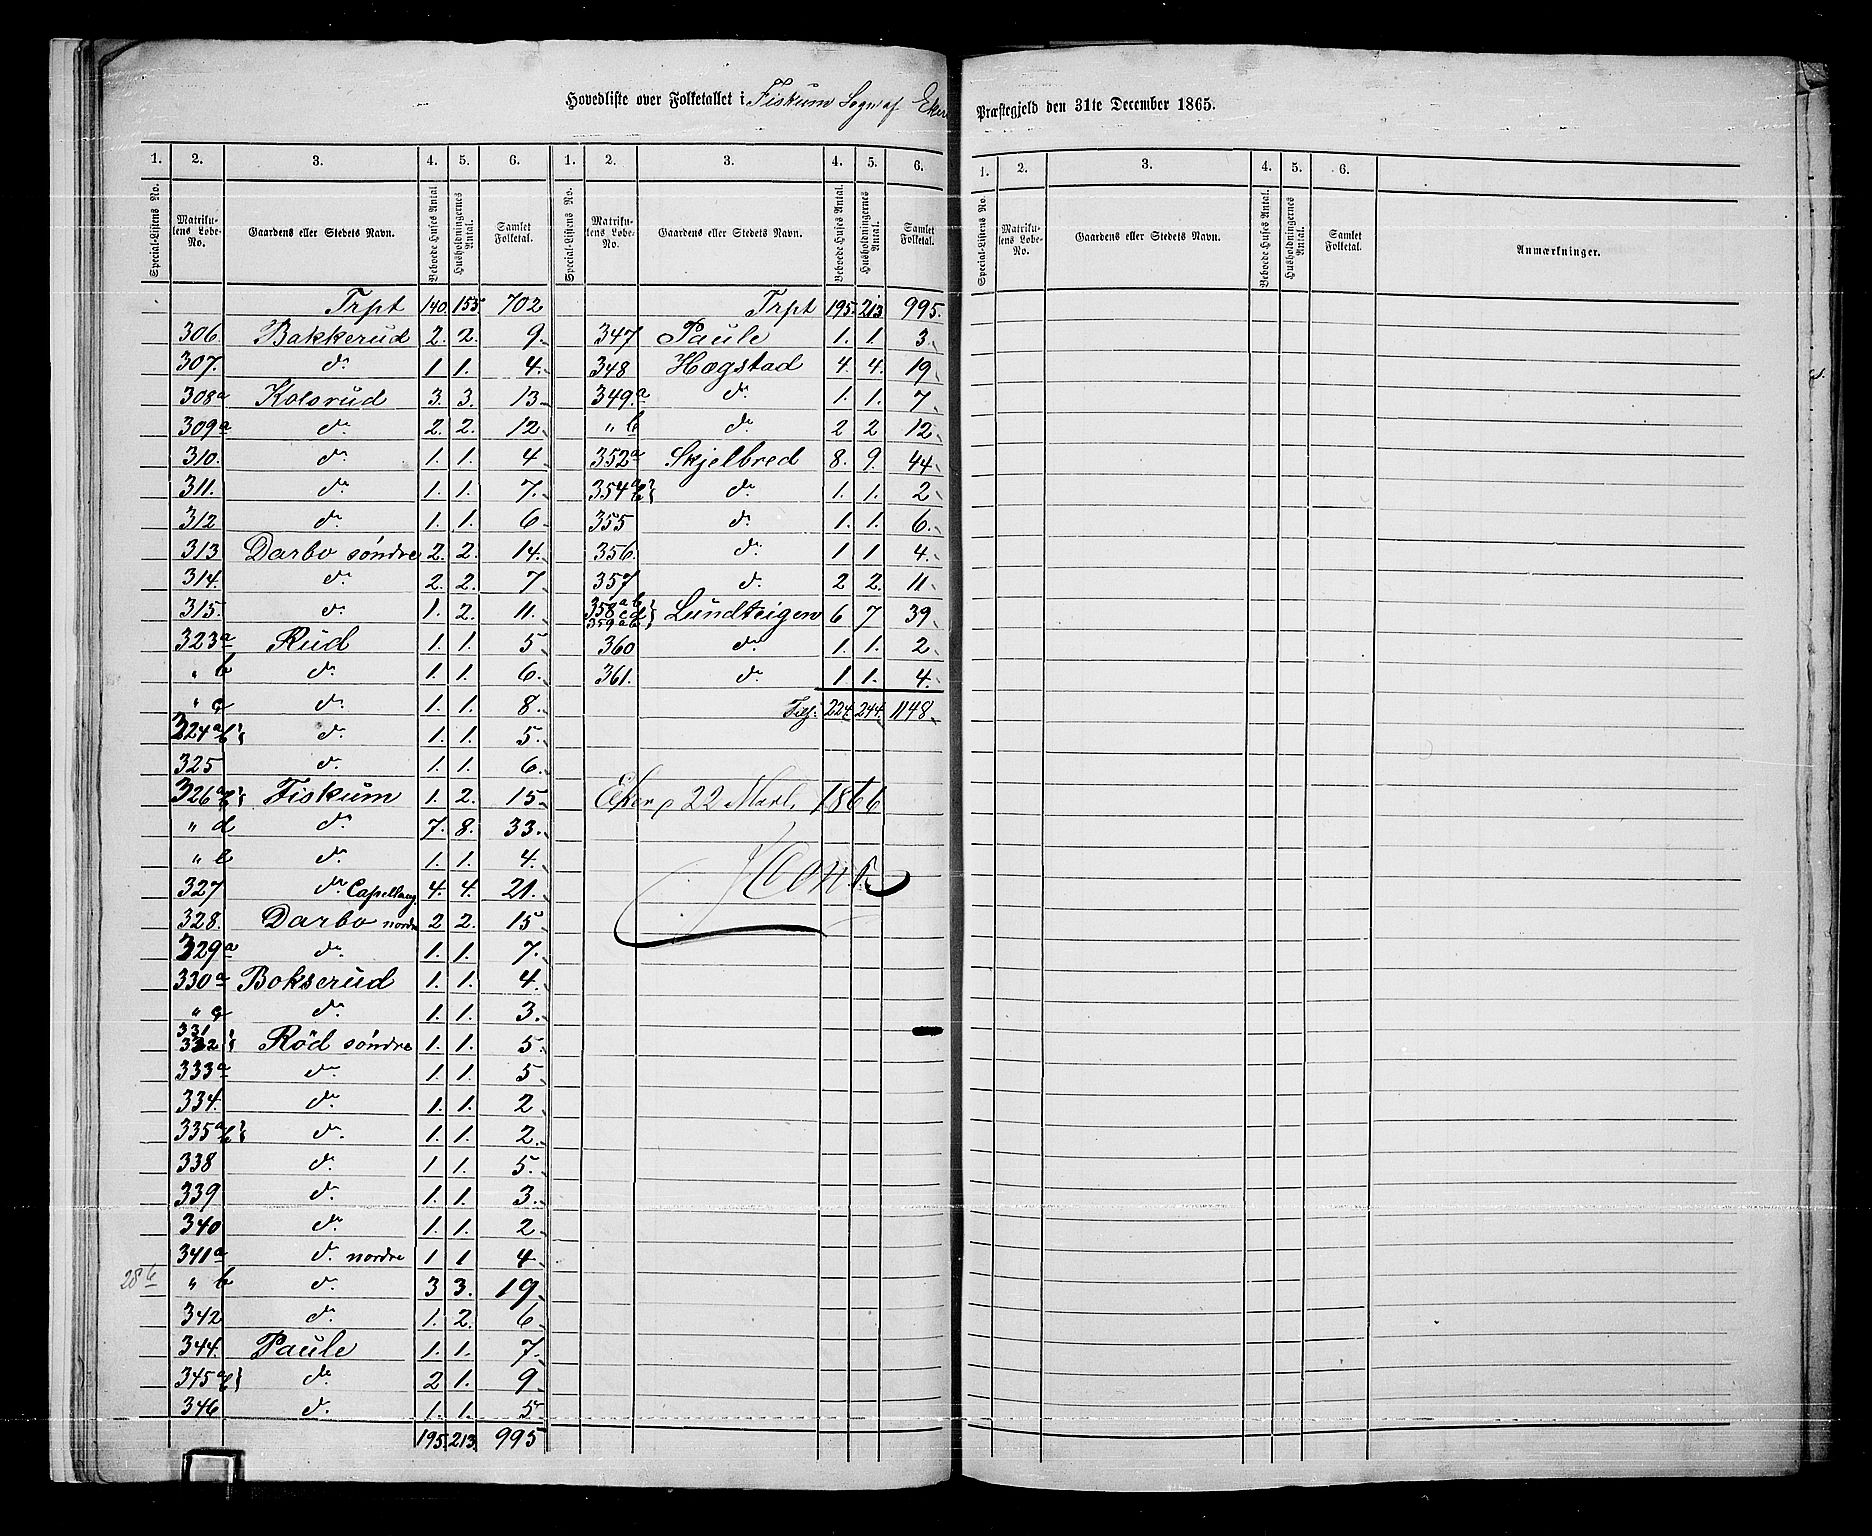 Hovedliste over Folketallet i Fiskum Sogn af Eker Præstegjeld den 31te December 1865.
1. 2. 3. 4. 5. 6. 1. 2. 3. 4. 5. 6.
Special-Listens No. Matrikulens Løbe-No. Gaardens eller Stedets Navn. Beboede Huses Antal. Husholdningernes Antal. Samlet Folketal. Special-Listens No. Matrikulens Løbe-No. Gaardens eller Stedets Navn. Beboede Huses Antal. Husholdningernes Antal. Samlet Folketal.
Trpt 140. 155. 702
306. Bakkerud 2. 2. 9.
307. do 1 1. 4.
308a Kolsrud 3. 3. 13
309a do 2. 2. 12
310. do 1. 1. 4
311. do 1. 1. 7.
312 do 1. 1. 6
313 Darbo søndre 2. 2. 14.
314. do 2. 2. 7
315. do 1. 2. 11.
323a Rud 1. 1. 5
" b do 1. 1. 6.
" c do 1. 1. 8.
324 a b } do 1. 1. 5.
325 do 1. 1. 6.
326 a b } Fiskum 1. 2. 15
" d do 7. 8. 33.
" e do 1. 1. 4.
327 do Capellang. 4. 4. 21.
328. Darbo nordre 2 2. 15
329a do 1. 1. 7.
330a Bokserud 1. 1. 4.
" c do 1. 1. 3.
331 332 } Rød søndre 1. 1. 5
333a do 1. 1. 5
334. do 1. 1. 2
335 a b } do 1. 1. 2.
338 do 1 1. 5.
339 do 1. 1. 3.
340 do 1. 1. 2
341a do nordre 1 1 4
28b " b do 3 3. 19
342 do 1. 2. 6
344. Paule 1. 1. 7.
345 a b } do 2 1. 9
346 do 1. 1. 5
195. 213. 995
Trpt 195. 213 995.
347 Paule 1. 1. 3
348 Hægstad 4. 4. 19
349.a do 1. 1. 7
" b do 2 2 12
352a Skjelbred 8. 9. 44
354 a b } do 1. 1. 2
355 do 1. 1. 6.
356. do 1 1 4
357 do 2 2. 11
358 a b c d 359 a b } Lundteigen 6 7 39
360 do 1. 1. 2
361. do 1. 1. 4.
Tils: 224. 244. 1148
Eker, 22 1866
1. 2. 3. 4. 5. 6.
Special-Listens No. Matrikulens Løbe-No. Gaardens eller Stedets Navn. Beboede Huses Antal. Husholdningernes Antal. Samlet Folketal. Anmærkninger.